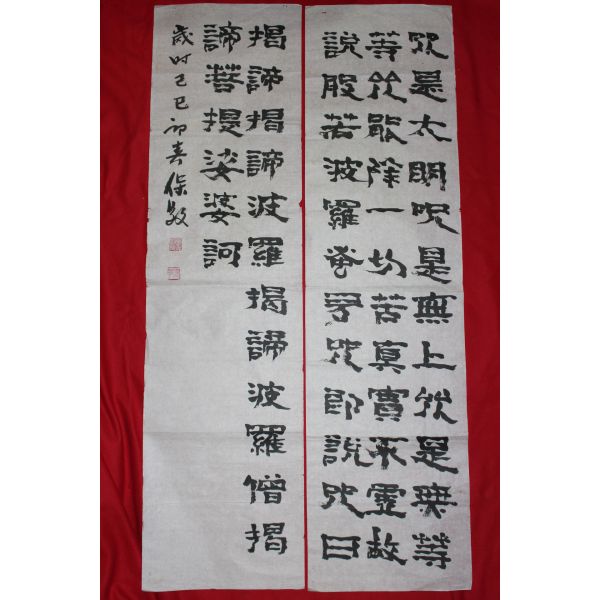 咒是太明呪是無上呪是無等
等呪能除一切苦真實不虛故
說般若波羅蜜多咒即說咒曰
揭諦揭諦波羅揭諦波羅僧揭
諦菩提娑婆訶
歲时己巳初春保